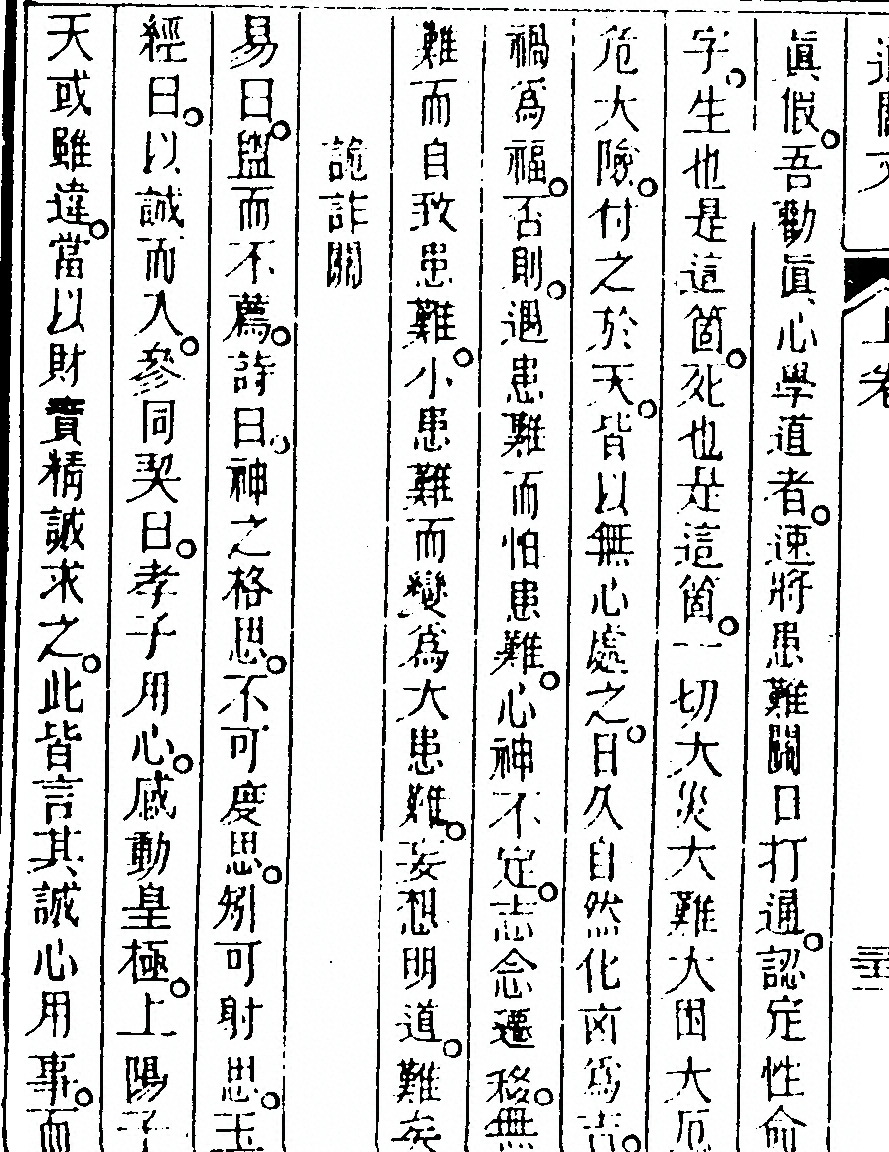 通關文
上卷
三
真假。吾勸真心學道者。速將患難關口打通。認定性命
字。生也是這箇。死也是這箇。一切大災大難大困大厄
危大險。付之於天。皆以無心處之。日久自然化凶為吉。
禍為福。否則。遇患難而怕患難。心神不定。志念遷移。無
難而自致患難。小患難而變為大患難。妄想明道。難矣
詭詐關
易曰。盥而不薦。詩曰。神之格思。不可度思。矧可射思。玉
經曰。以誠而入。參同契曰。孝子用心。感動皇極。上陽子
天或雖違。當以財寶精誠求之。此皆言其誠心用事。而